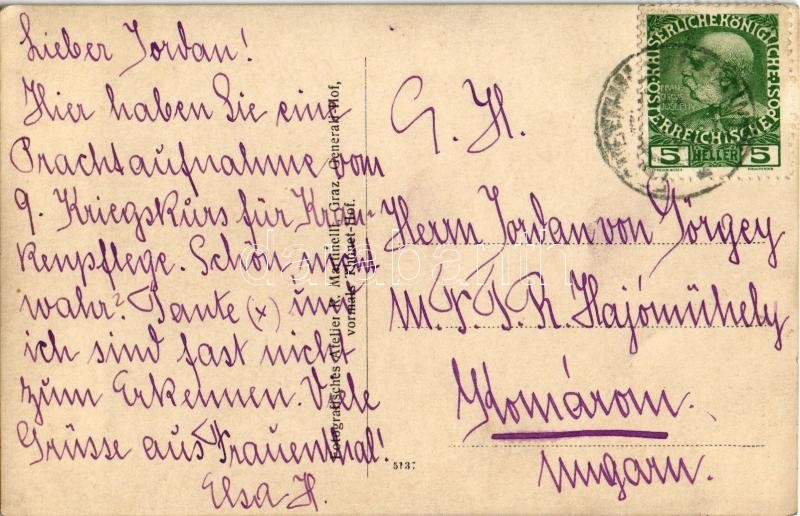 Lieber Jordan!
Hier haben Sie eine
Prachtaufnahme vom
9. Kriegskurs für Kran-
kenpflege. Schön nicht
wahr? Tante (x) und
ich sind fast nicht
zum Erkennen. Viele
Grüsse aus Frauenthal!
Elsa H.
Fotografisches Atelier R. Martinelli, Graz, Generali-Hof,
vormals Thonet-Hof.
5137
G. H.
Herrn Jordan von Görgey
M.F.T.R. Hajóműhely
Komárom.
Ungarn.
KAISERLICHE KÖNIGLICHE ÖSTERREICHISCHE POST
5 HELLER 5
darabanth